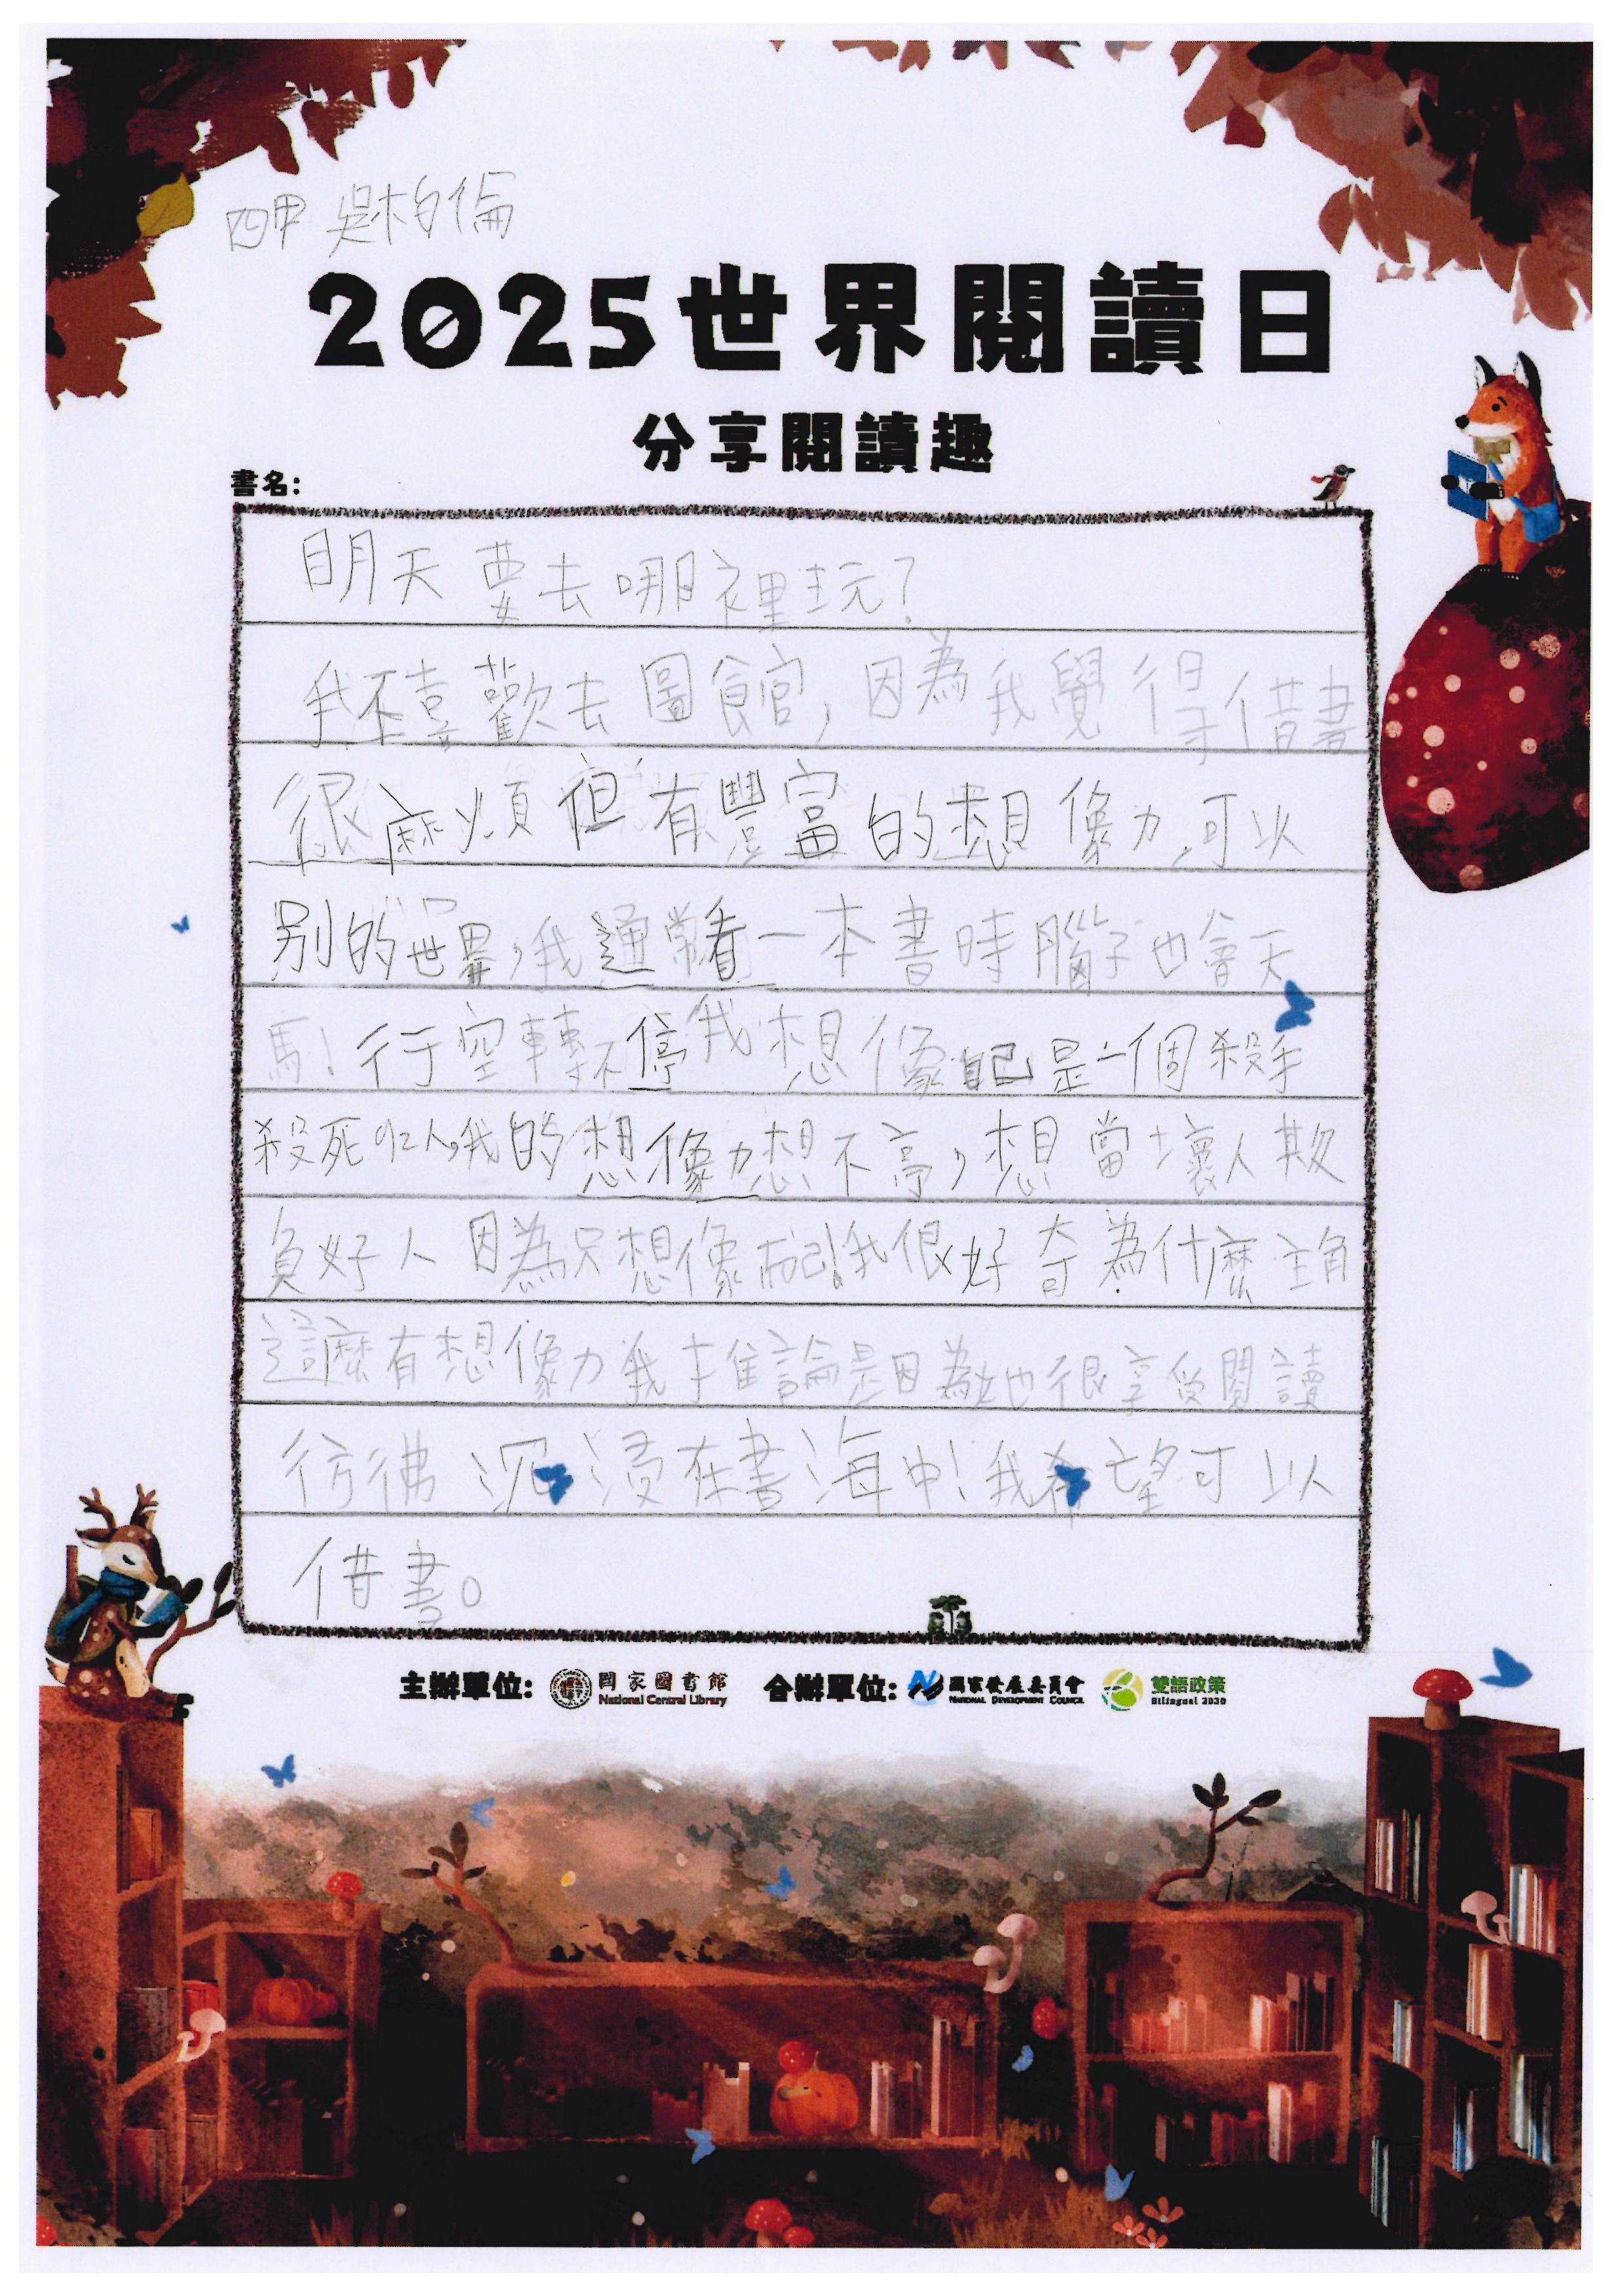 四甲 吳柏倫
2025世界閱讀日
分享閱讀趣
書名:
明天要去哪裡玩?
我不喜歡去圖館,因為我覺得借書
很麻煩但有豐富的想像力,可以
別的世界,我通常看一本書時腦子也會天
馬!行空轉不停我想像自己是一個殺手
殺死犯人,我的想像力想不亭,想當壞人欺
負好人因為只想像而已!我很好奇為什麼主角
這麼有想像力我推論是因為她很享受閱讀
彷彿沉浸在書海中!我希望可以
借書。
主辦單位: 國家圖書館 National Central Library 合辦單位: 國家發展委員會 National Development Council 雙語政策 Bilingual 2030